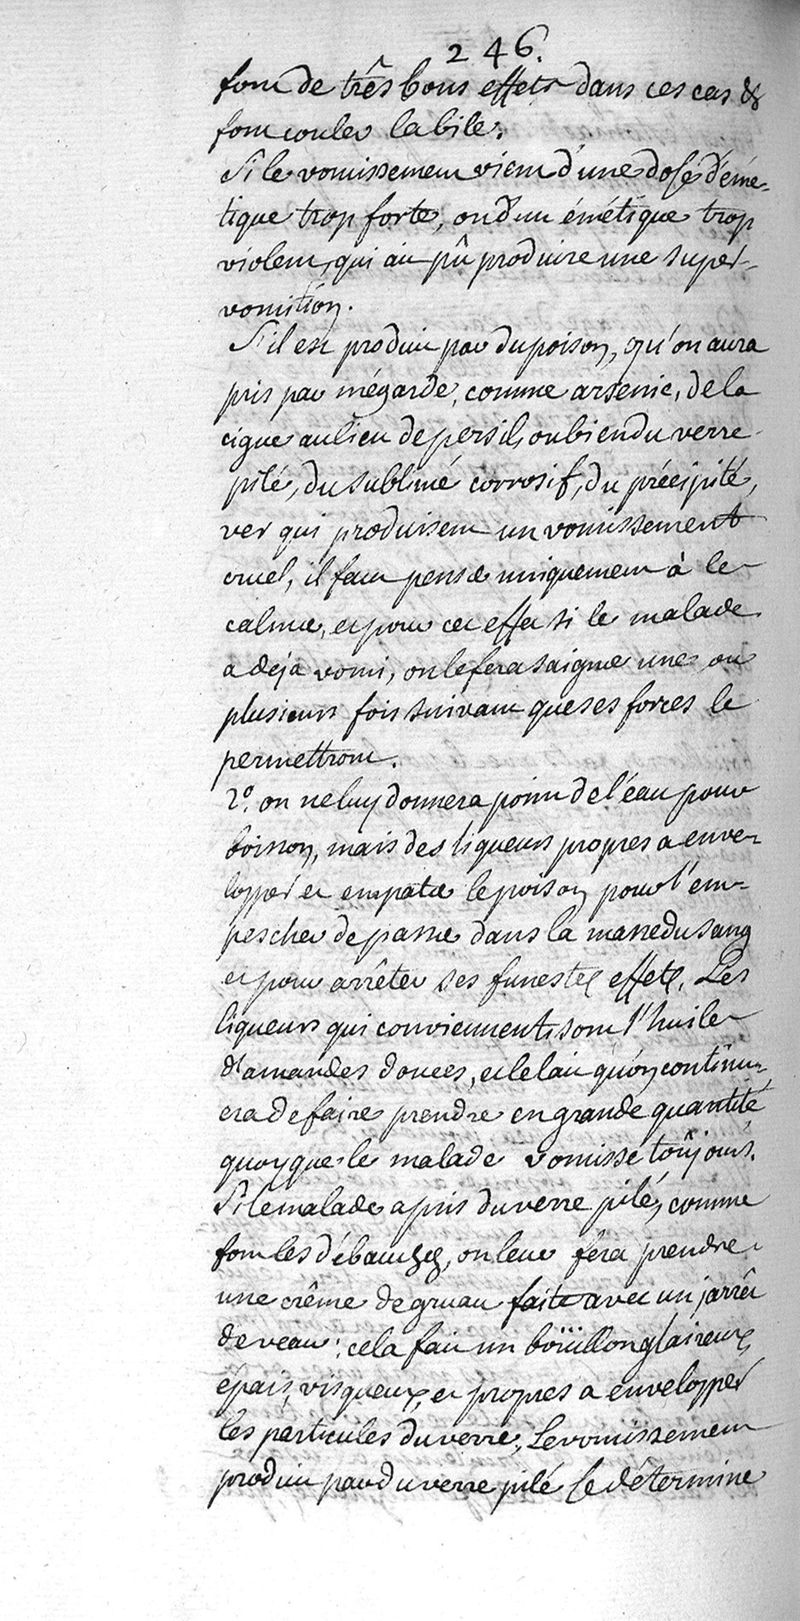 246.
font de três bons effets dans ces cas &
font couler la bile.
Si le vomissement vient d'une dose d'émé-
tique trop forte, ou d'un émétique trop
violent, qui ait pû produire une super-
vomition.
S'il est produit par du poison, qu'on aura
pris par mégarde, comme arsenic, de la
cigue au lieu de persil, ou bien du verre
pilé, du sublimé corrosif, du précipité,
ver qui produisent un vomissement
cruel, il faut penser uniquement à le
calmer, et pour cet effet si le malade
a déja vomi, on le fera saigner une ou
plusieurs fois suivant que ses forces le
permettront.
2º. on ne luy donnera point de l'éau pour
boisson, mais des liqueurs propres a enve-
lopper et empater le poison pour l'em-
pescher de passer dans la masse du sang
et pour arrêter ses funestes effets. Les
liqueurs qui conviennent, sont l'huile
d'amandes douces, et le lait qu'on continu-
era de faire prendre en grande quantité
quoyque le malade vomisse toûjours.
Si le malade a pris du verre pilé, comme
font les débauchés, on leur fera prendre
une crême de gruau faite avec un jarrêt
de veau: cela fait un boüillon glaireux,
épais, visqueux, et propres a envelopper
les particules du verre. Le vomissement
produit par du verre pilé se détermine